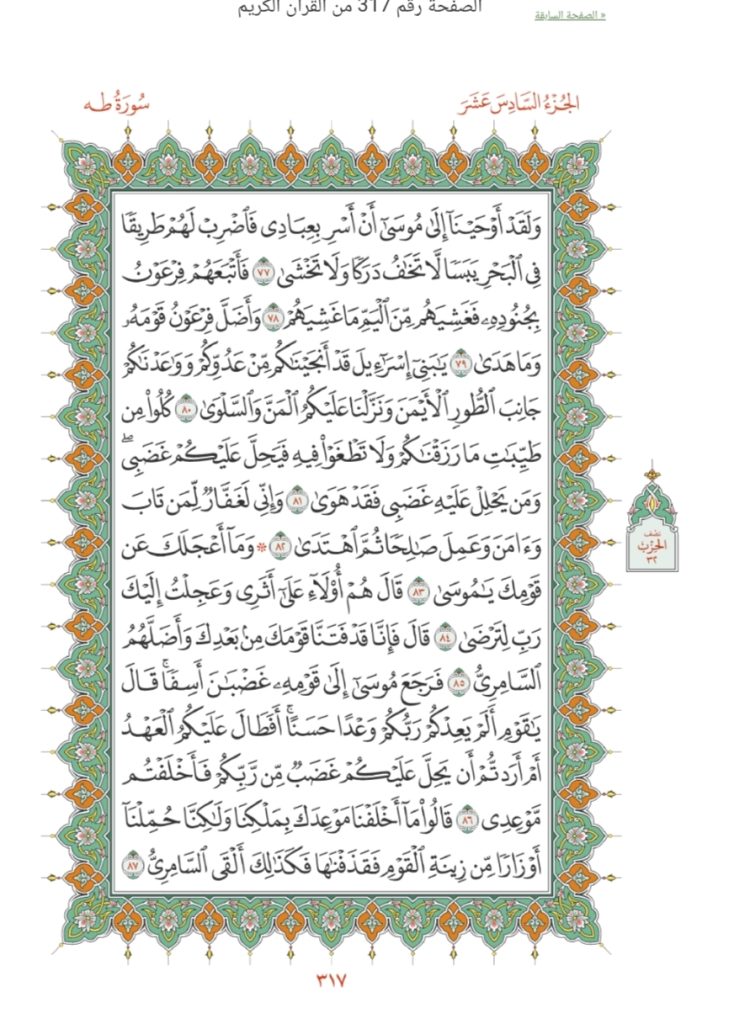 الصفحة رقم 317 من القرآن الكريم
« الصفحة السابقة
الجُزْءُ السَّادِسَ عَشَرَ
سُورَةُ طه
وَلَقَدْ أَوْحَيْنَآ إِلَىٰ مُوسَىٰٓ أَنْ أَسْرِ بِعِبَادِى فَٱضْرِبْ لَهُمْ طَرِيقًا
فِى ٱلْبَحْرِ يَبَسًا لَّا تَخَٰفُ دَرَكًا وَلَا تَخْشَىٰ ٧٧ فَأَتْبَعَهُمْ فِرْعَوْنُ
بِجُنُودِهِۦ فَغَشِيَهُم مِّنَ ٱلْيَمِّ مَا غَشِيَهُمْ ٧٨ وَأَضَلَّ فِرْعَوْنُ قَوْمَهُۥ
وَمَا هَدَىٰ ٧٩ يَٰبَنِىٓ إِسْرَٰٓءِيلَ قَدْ أَنجَيْنَٰكُم مِّنْ عَدُوِّكُمْ وَوَٰعَدْنَٰكُمْ
جَانِبَ ٱلطُّورِ ٱلْأَيْمَنَ وَنَزَّلْنَا عَلَيْكُمُ ٱلْمَنَّ وَٱلسَّلْوَىٰ ٨٠ كُلُوا۟ مِن
طَيِّبَٰتِ مَا رَزَقْنَٰكُمْ وَلَا تَطْغَوْا۟ فِيهِ فَيَحِلَّ عَلَيْكُمْ غَضَبِى ۖ
وَمَن يَحْلِلْ عَلَيْهِ غَضَبِى فَقَدْ هَوَىٰ ٨١ وَإِنِّى لَغَفَّارٌ لِّمَن تَابَ
وَءَامَنَ وَعَمِلَ صَٰلِحًا ثُمَّ ٱهْتَدَىٰ ٨٢ * وَمَآ أَعْجَلَكَ عَن
نصف
الحِزْب
٣٢
قَوْمِكَ يَٰمُوسَىٰ ٨٣ قَالَ هُمْ أُو۟لَآءِ عَلَىٰٓ أَثَرِى وَعَجِلْتُ إِلَيْكَ
رَبِّ لِتَرْضَىٰ ٨٤ قَالَ فَإِنَّا قَدْ فَتَنَّا قَوْمَكَ مِنۢ بَعْدِكَ وَأَضَلَّهُمُ
ٱلسَّامِرِىُّ ٨٥ فَرَجَعَ مُوسَىٰٓ إِلَىٰ قَوْمِهِۦ غَضْبَٰنَ أَسِفًا ۚ قَالَ
يَٰقَوْمِ أَلَمْ يَعِدْكُمْ رَبُّكُمْ وَعْدًا حَسَنًا ۚ أَفَطَالَ عَلَيْكُمُ ٱلْعَهْدُ
أَمْ أَرَدتُّمْ أَن يَحِلَّ عَلَيْكُمْ غَضَبٌ مِّن رَّبِّكُمْ فَأَخْلَفْتُم
مَّوْعِدِى ٨٦ قَالُوا۟ مَآ أَخْلَفْنَا مَوْعِدَكَ بِمَلْكِنَا وَلَٰكِنَّا حُمِّلْنَآ
أَوْزَارًا مِّن زِينَةِ ٱلْقَوْمِ فَقَذَفْنَٰهَا فَكَذَٰلِكَ أَلْقَى ٱلسَّامِرِىُّ ٨٧
٣١٧